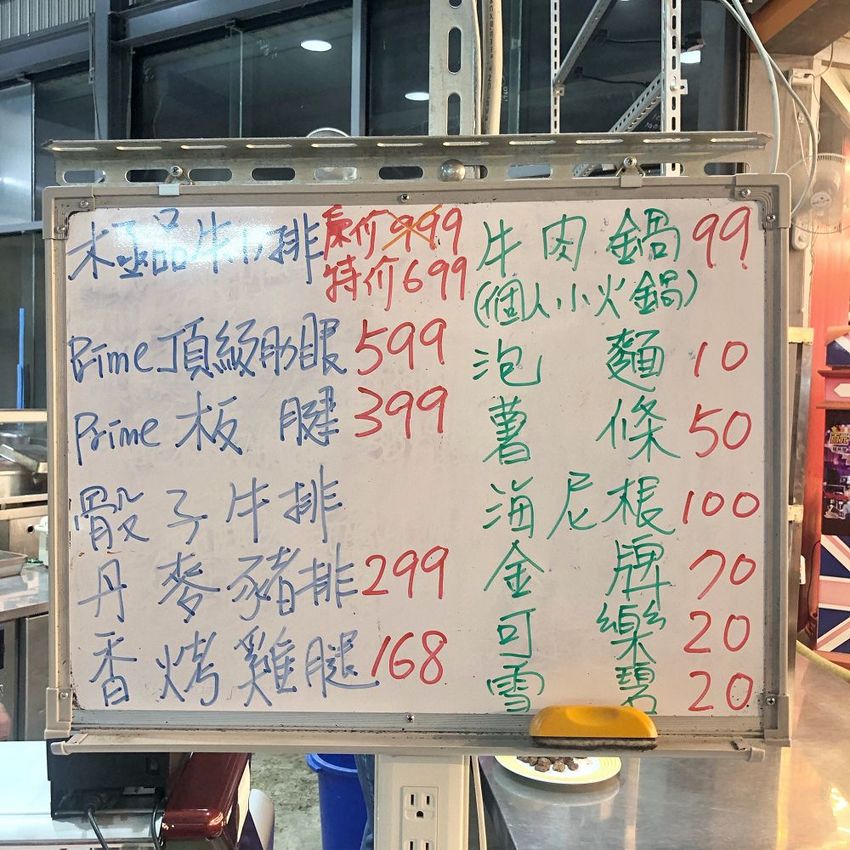 極品牛小排 原价999
特价699
Prime頂級肋眼 599
Prime 板腱 399
骰子牛排
丹麥豬排 299
香烤雞腿 168
牛肉鍋 99
(個人小火鍋)
泡麵 10
薯條 50
海尼根 100
金牌 70
可樂 20
雪碧 20